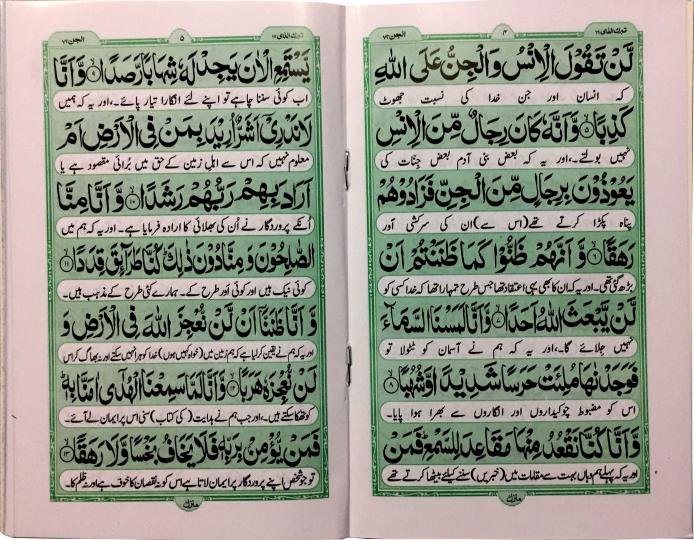 تبٰرک الذی ۲۹
۴
الجن ۷۲
لَّنْ تَقُوْلَ الْاِنْسُ وَالْجِنُّ عَلَی اللّٰهِ
کہ انسان اور جن خدا کی نسبت جھوٹ
كَذِبًا ۵ وَّاَنَّهٗ كَانَ رِجَالٌ مِّنَ الْاِنْسِ
نہیں بولتے۔ اور یہ کہ بعض بنی آدم بعض جِنّات کی
يَعُوْذُوْنَ بِرِجَالٍ مِّنَ الْجِنِّ فَزَادُوْهُمْ
پناہ پکڑا کرتے تھے (اس سے) ان کی سرکشی اور
رَهَقًا ۶ وَّاَنَّهُمْ ظَنُّوْا كَمَا ظَنَنْتُمْ اَنْ
بڑھ گئی تھی۔ اور یہ کہ ان کا بھی یہی اعتقاد تھا جس طرح تمہارا تھا کہ خدا کسی کو
لَّنْ يَّبْعَثَ اللّٰهُ اَحَدًا ۷ وَّاَنَّا لَمَسْنَا السَّمَآءَ
نہیں جلائے گا۔ اور یہ کہ ہم نے آسمان کو ٹٹولا تو
فَوَجَدْنٰهَا مُلِئَتْ حَرَسًا شَدِيْدًا وَّشُهُبًا ۸
اس کو مضبوط چوکیداروں اور انگاروں سے بھرا ہوا پایا۔
وَّاَنَّا كُنَّا نَقْعُدُ مِنْهَا مَقَاعِدَ لِلسَّمْعِ فَمَنْ
اور یہ کہ پہلے ہم وہاں بہت سے مقامات میں (خبریں) سننے کیلئے بیٹھا کرتے تھے
منزل
تبٰرک الذی ۲۹
۵
الجن ۷۲
يَّسْتَمِعِ الْاٰنَ يَجِدْ لَهٗ شِهَابًا رَّصَدًا ۹ وَّاَنَّا
اب کوئی سننا چاہے تو اپنے لئے انگارا تیار پائے۔ اور یہ کہ ہمیں
لَا نَدْرِیْۤ اَشَرٌّ اُرِيْدَ بِمَنْ فِی الْاَرْضِ اَمْ
معلوم نہیں کہ اس سے اہلِ زمین کے حق میں بُرائی مقصود ہے یا
اَرَادَ بِهِمْ رَبُّهُمْ رَشَدًا ۱۰ وَّاَنَّا مِنَّا
اُنکے پروردگار نے اُن کی بھلائی کا ارادہ فرمایا ہے۔ اور یہ کہ ہم میں
الصّٰلِحُوْنَ وَمِنَّا دُوْنَ ذٰلِكَ كُنَّا طَرَآئِقَ قِدَدًا ۱۱
کوئی نیک ہیں اور کوئی اور طرح کے۔ ہمارے کئی طرح کے مذہب ہیں۔
وَّاَنَّا ظَنَنَّاۤ اَنْ لَّنْ نُّعْجِزَ اللّٰهَ فِی الْاَرْضِ وَ
اور یہ کہ ہم نے یقین کر لیا ہے کہ ہم زمین میں (خواہ کہیں ہوں) خدا کو ہرا نہیں سکتے اور نہ بھاگ کر اس
لَنْ نُّعْجِزَهٗ هَرَبًا ۱۲ وَّاَنَّا لَمَّا سَمِعْنَا الْهُدٰۤی اٰمَنَّا بِهٖ
کو تھکا سکتے ہیں۔ اور جب ہم نے ہدایت (کی کتاب) سنی اس پر ایمان لے آئے۔
فَمَنْ يُّؤْمِنْۢ بِرَبِّهٖ فَلَا يَخَافُ بَخْسًا وَّلَا رَهَقًا ۱۳
تو جو شخص اپنے پروردگار پر ایمان لاتا ہے اس کو نہ نقصان کا خوف ہے اور نہ ظلم کا۔
منزل